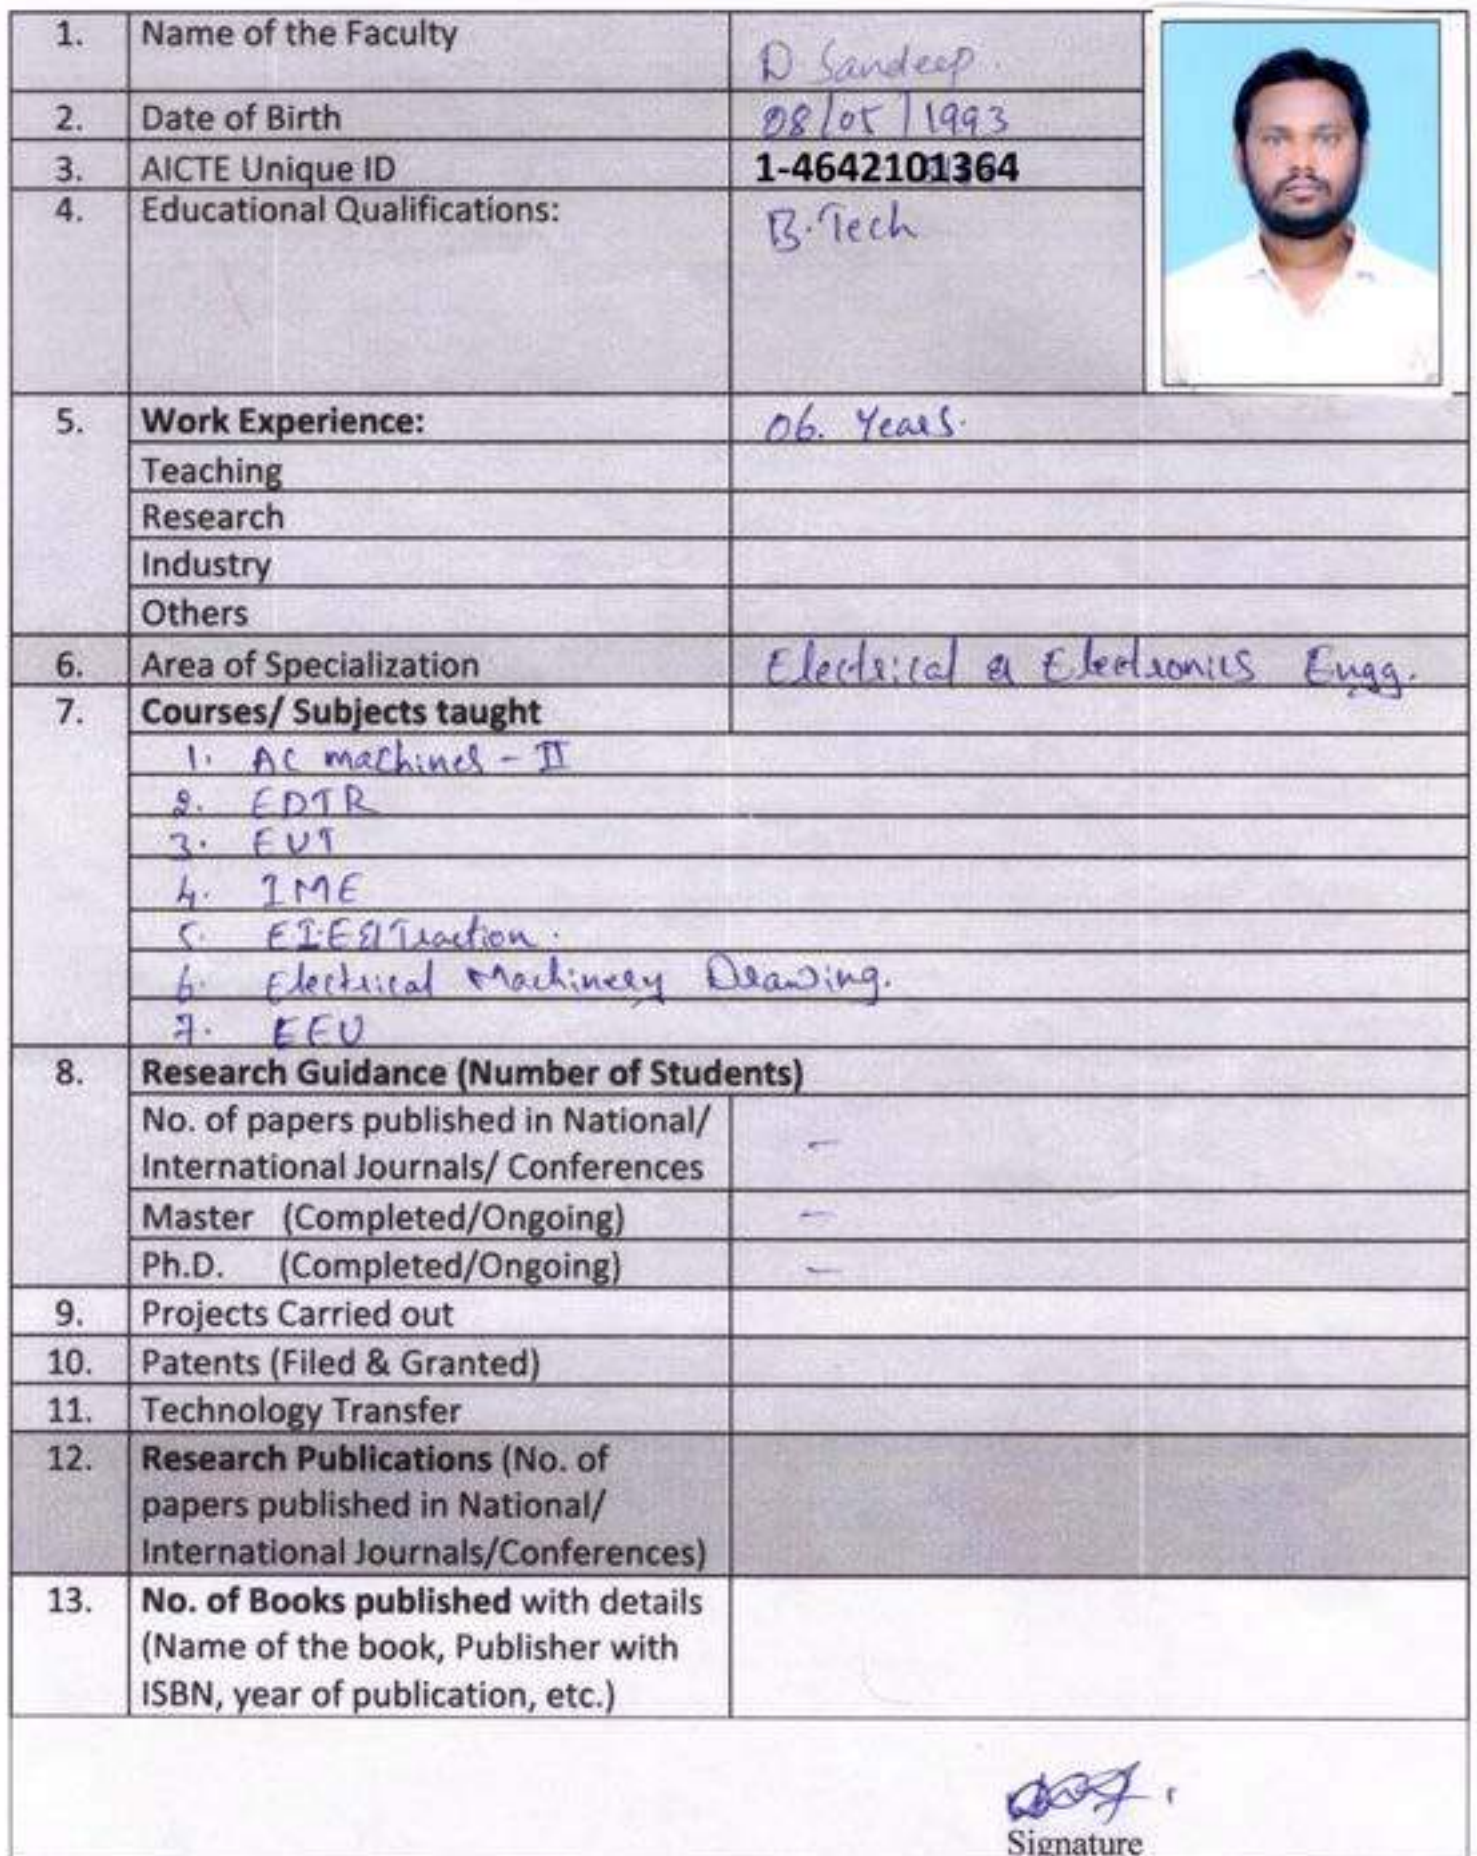 1. Name of the Faculty D. Sandeep.
2. Date of Birth 08/05/1993
3. AICTE Unique ID 1-4642101364
4. Educational Qualifications: B.Tech
5. Work Experience: 06. Years.
Teaching
Research
Industry
Others
6. Area of Specialization Electrical & Electronics Engg.
7. Courses/ Subjects taught
1. AC machines - II
2. EDTR
3. EUT
4. IME
5. EIE& Traction.
6. Electrical Machinery Drawing.
7. EEU
8. Research Guidance (Number of Students)
No. of papers published in National/ –
International Journals/ Conferences
Master (Completed/Ongoing) –
Ph.D. (Completed/Ongoing) –
9. Projects Carried out
10. Patents (Filed & Granted)
11. Technology Transfer
12. Research Publications (No. of
papers published in National/
International Journals/Conferences)
13. No. of Books published with details
(Name of the book, Publisher with
ISBN, year of publication, etc.)
Signature